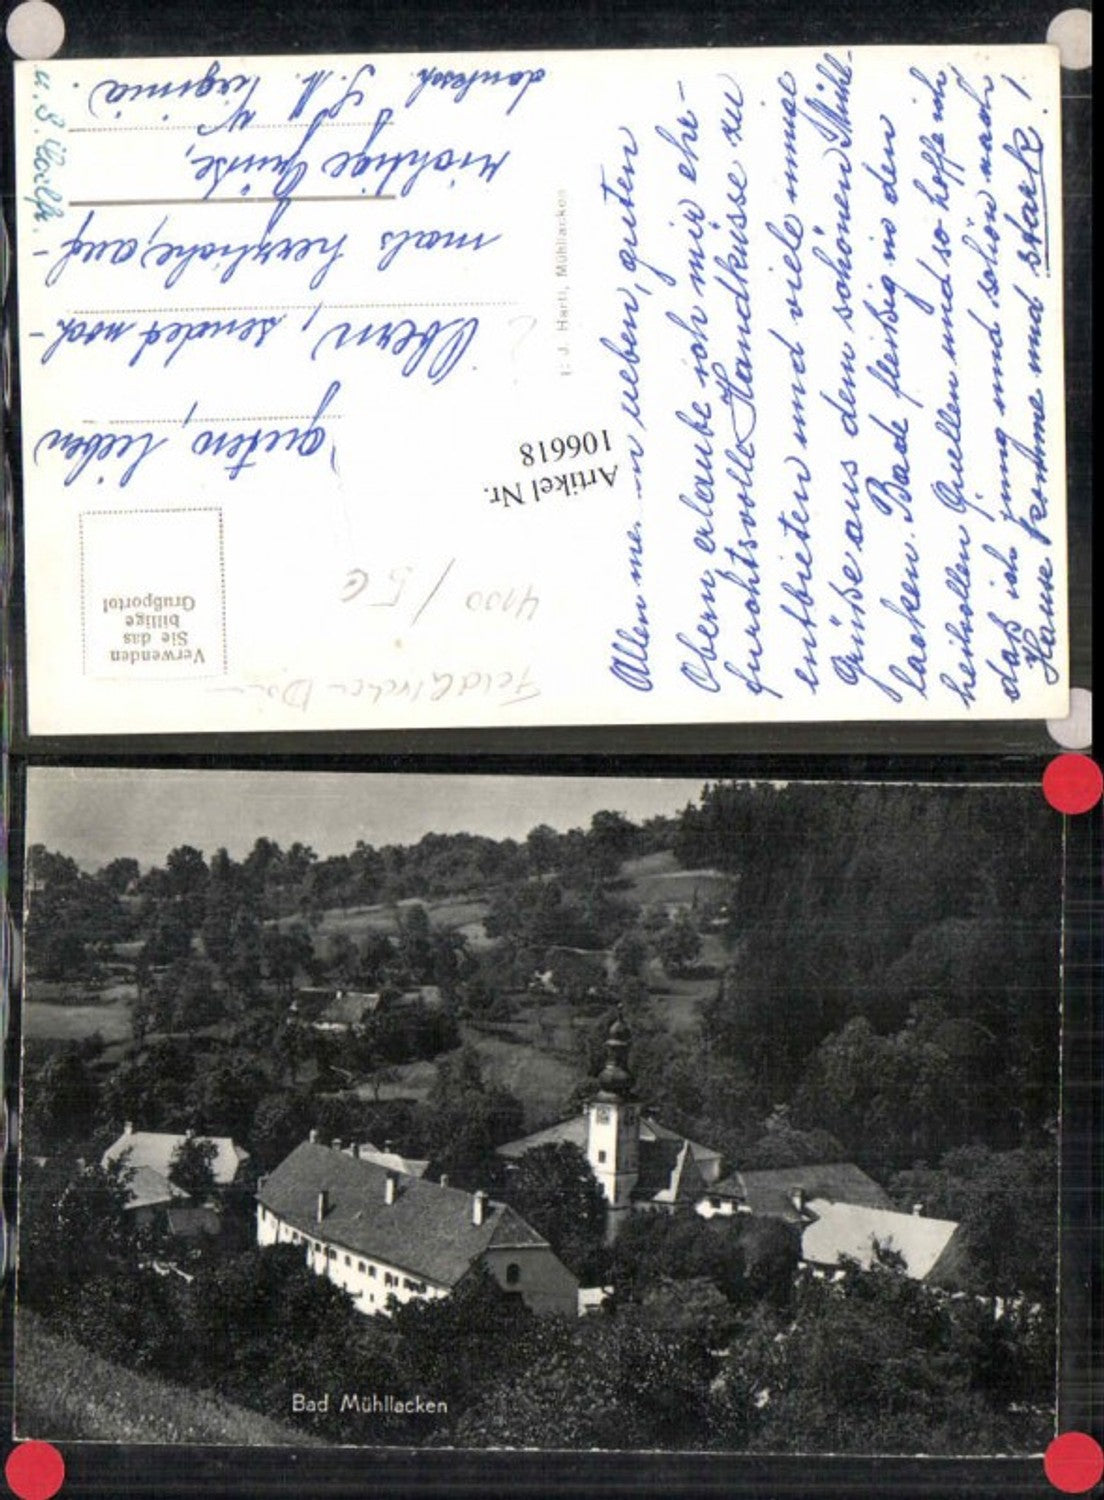 Allen me... lieben, guten
Obern, erlaube ich mir ehr-
furchtsvolle Handküsse zu
entbieten und viele innige
Grüße aus dem schönen Mühl-
lacken. Bade fleißig in den
heilvollen Quellen und so hoffe ich
daß ich jung und schön nach
Hause komme und stark!
guten, lieben
Obern, sendet noch-
mals herzliche, auf-
richtige Grüße,
danksch. S. M. Virginia.
u. S.
Verwenden
Sie das
billige
Grußporto!
J. Hartl, Mühllacken
Artikel Nr.
106618
Feldkirchen Don
4100 / 5 €
Bad Mühllacken